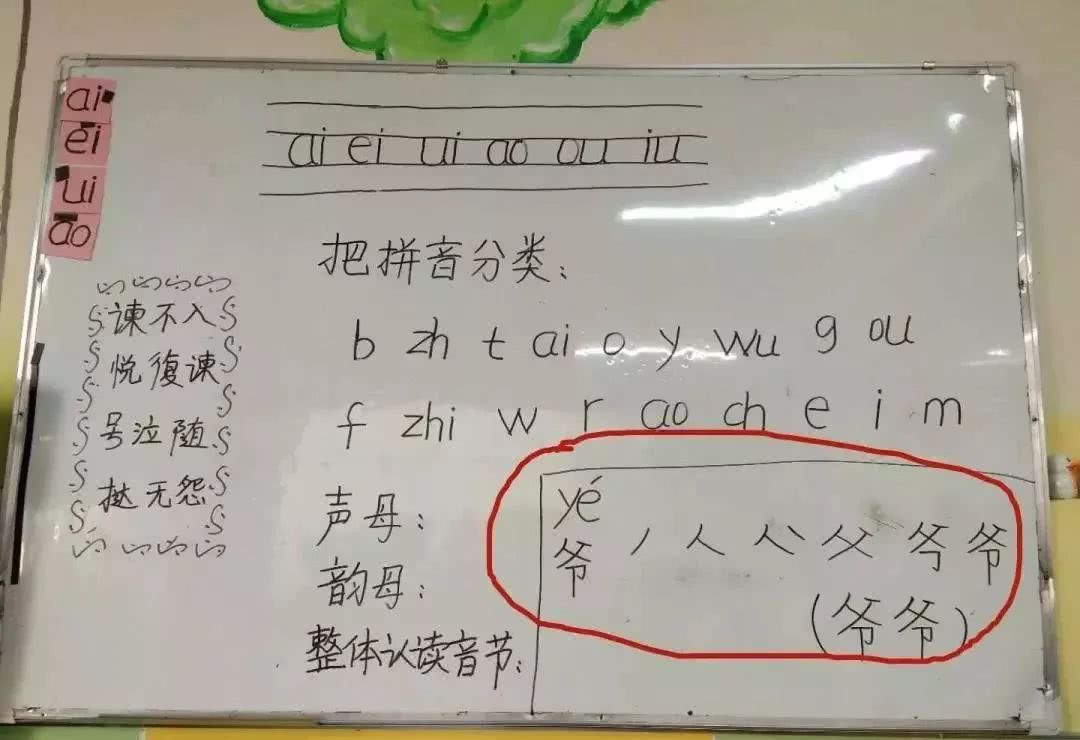 ai
ei
ui
ao
ai ei ui ao ou iu
把拼音分类:
b zh t ai o y wu g ou
f zhi w r ao ch e i m
声母:
韵母:
整体认读音节:
谏不入
悦復谏
号泣随
挞无怨
yé
爷 丿 人 父 爷 爷
(爷爷)